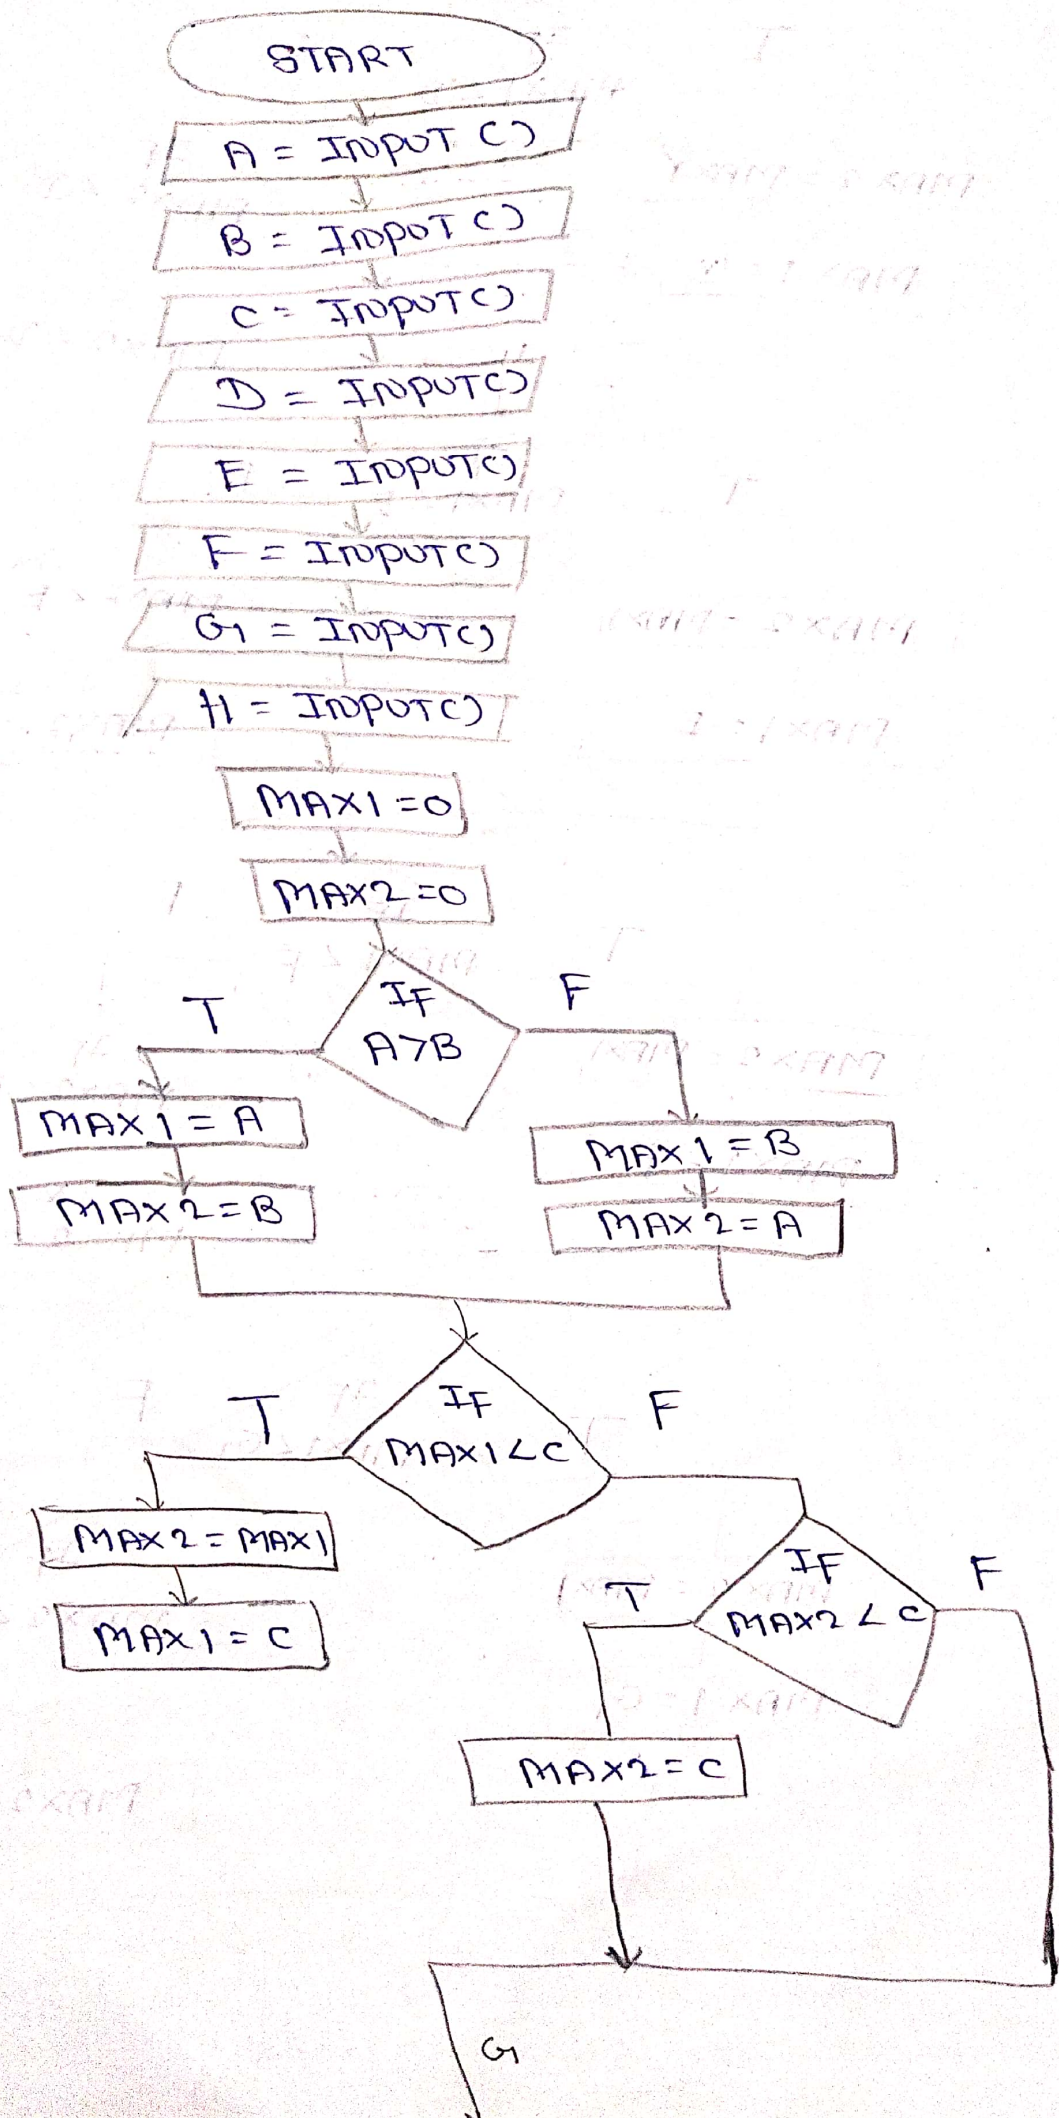 START
A = INPUT ()
B = INPUT ()
C = INPUT ()
D = INPUT ()
E = INPUT ()
F = INPUT ()
G = INPUT ()
H = INPUT ()
MAX1 = 0
MAX2 = 0
IF
A>B
T
F
MAX1 = A
MAX2 = B
MAX1 = B
MAX2 = A
IF
MAX1 < C
T
F
MAX2 = MAX1
MAX1 = C
IF
MAX2 < C
T
F
MAX2 = C
G